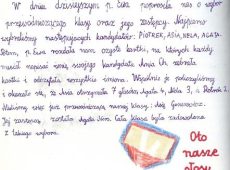 W dniu dzisiejszym p. Ewa poprosiła nas o wybór
przewodniczącego klasy oraz jego zastępcy. Najpierw
wybraliśmy następujących kandydatów: PIOTREK, ASIA, NELA, AGATA.
Potem, p. Ewa rozdała nam czyste kartki, na których każdy
musiał napisać imię swojego kandydata. Pani Ch. zebrała
kartki i odczytała wszystkie imiona. Wspólnie je policzyliśmy
i okazało się, że Asia otrzymała 7 głosów, Agata 4, Nela 3, a Piotrek 2.
klasy
Jej zastępcą została Agata. Cała klasa była zadowolona
z takiego wyboru.
Oto
nasze
głosy